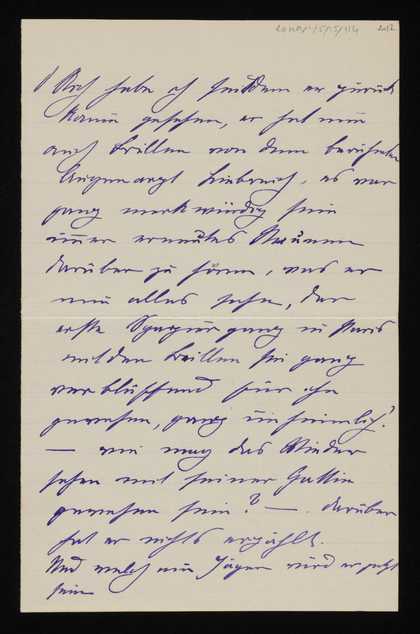 Rich habe ich seitdem er zurück
kaum gesehen, er hat nun
auch Brillen von dem berühmten
Augenarzt Liebreich, es war
ganz merkwürdig sein
immer erneutes Staunen
darüber zu hören, was er
nun alles sehe, der
erste Spaziergang in Paris
mit den Brillen sei ganz
verblüffend für ihn
gewesen, ganz unheimlich!
— wie mag das Wieder
sehen mit seiner Gattin
gewesen sein? — darüber
hat er nichts erzählt.
Und welch ein Jäger wird er jetzt
sein